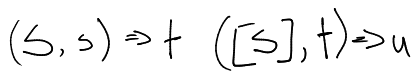 (S, s) ⇒ t ([S], t) ⇒ u